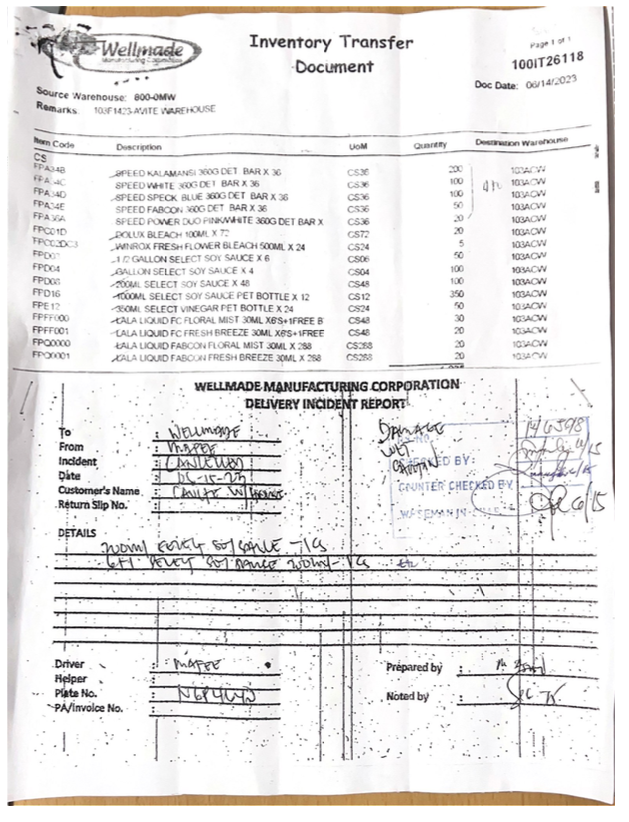 Wellmade
Manufacturing Corporation
Inventory Transfer
Document
Page 1 of 1
100IT26118
Doc Date: 06/14/2023
Source Warehouse: 800-0MW
Remarks: 103F1423-AVITE WAREHOUSE
Item Code Description UoM Quantity Destination Warehouse
CS
FPA34B SPEED KALAMANSI 360G DET BAR X 36 CS36 200 103ACW
FPA34C SPEED WHITE 360G DET BAR X 36 CS36 100 103ACW
FPA34D SPEED SPECK BLUE 360G DET BAR X 36 CS36 100 103ACW
FPA34E SPEED FABCON 360G DET BAR X 36 CS36 50 103ACW
FPA36A SPEED POWER DUO PINK/WHITE 360G DET BAR X CS36 20 103ACW
FPC01D DOLUX BLEACH 100ML X 72 CS72 20 103ACW
FPC02DC3 WINROX FRESH FLOWER BLEACH 500ML X 24 CS24 5 103ACW
1/2 GALLON SELECT SOY SAUCE X 6 CS06 50 103ACW
FPD04 GALLON SELECT SOY SAUCE X 4 CS04 100 103ACW
200ML SELECT SOY SAUCE X 48 CS48 100 103ACW
FPD16 1000ML SELECT SOY SAUCE PET BOTTLE X 12 CS12 350 103ACW
FPE12 350ML SELECT VINEGAR PET BOTTLE X 24 CS24 50 103ACW
FPFF000 LALA LIQUID FC FLORAL MIST 30ML X6'S+1FREE B CS48 30 103ACW
FPFF001 LALA LIQUID FC FRESH BREEZE 30ML X6'S+1FREE CS48 20 103ACW
FPQ0000 LALA LIQUID FABCON FLORAL MIST 30ML X 288 CS288 20 103ACW
FPQ0001 LALA LIQUID FABCON FRESH BREEZE 30ML X 288 CS288 20 103ACW
WELLMADE MANUFACTURING CORPORATION
DELIVERY INCIDENT REPORT
To : WELLMADE
From : MAPEE
Incident :
Date : 06-15-23
Customer's Name : CAVITE
Return Slip No. :
DAMAGE
WET
CARTON
CHECKED BY:
COUNTER CHECKED BY
DETAILS
200ml SOY SAUCE - 1cs
SOY SAUCE 200ml - 1cs
Driver : MAPEE
Helper :
Plate No. :
PA/Invoice No. :
Prepared by :
Noted by :